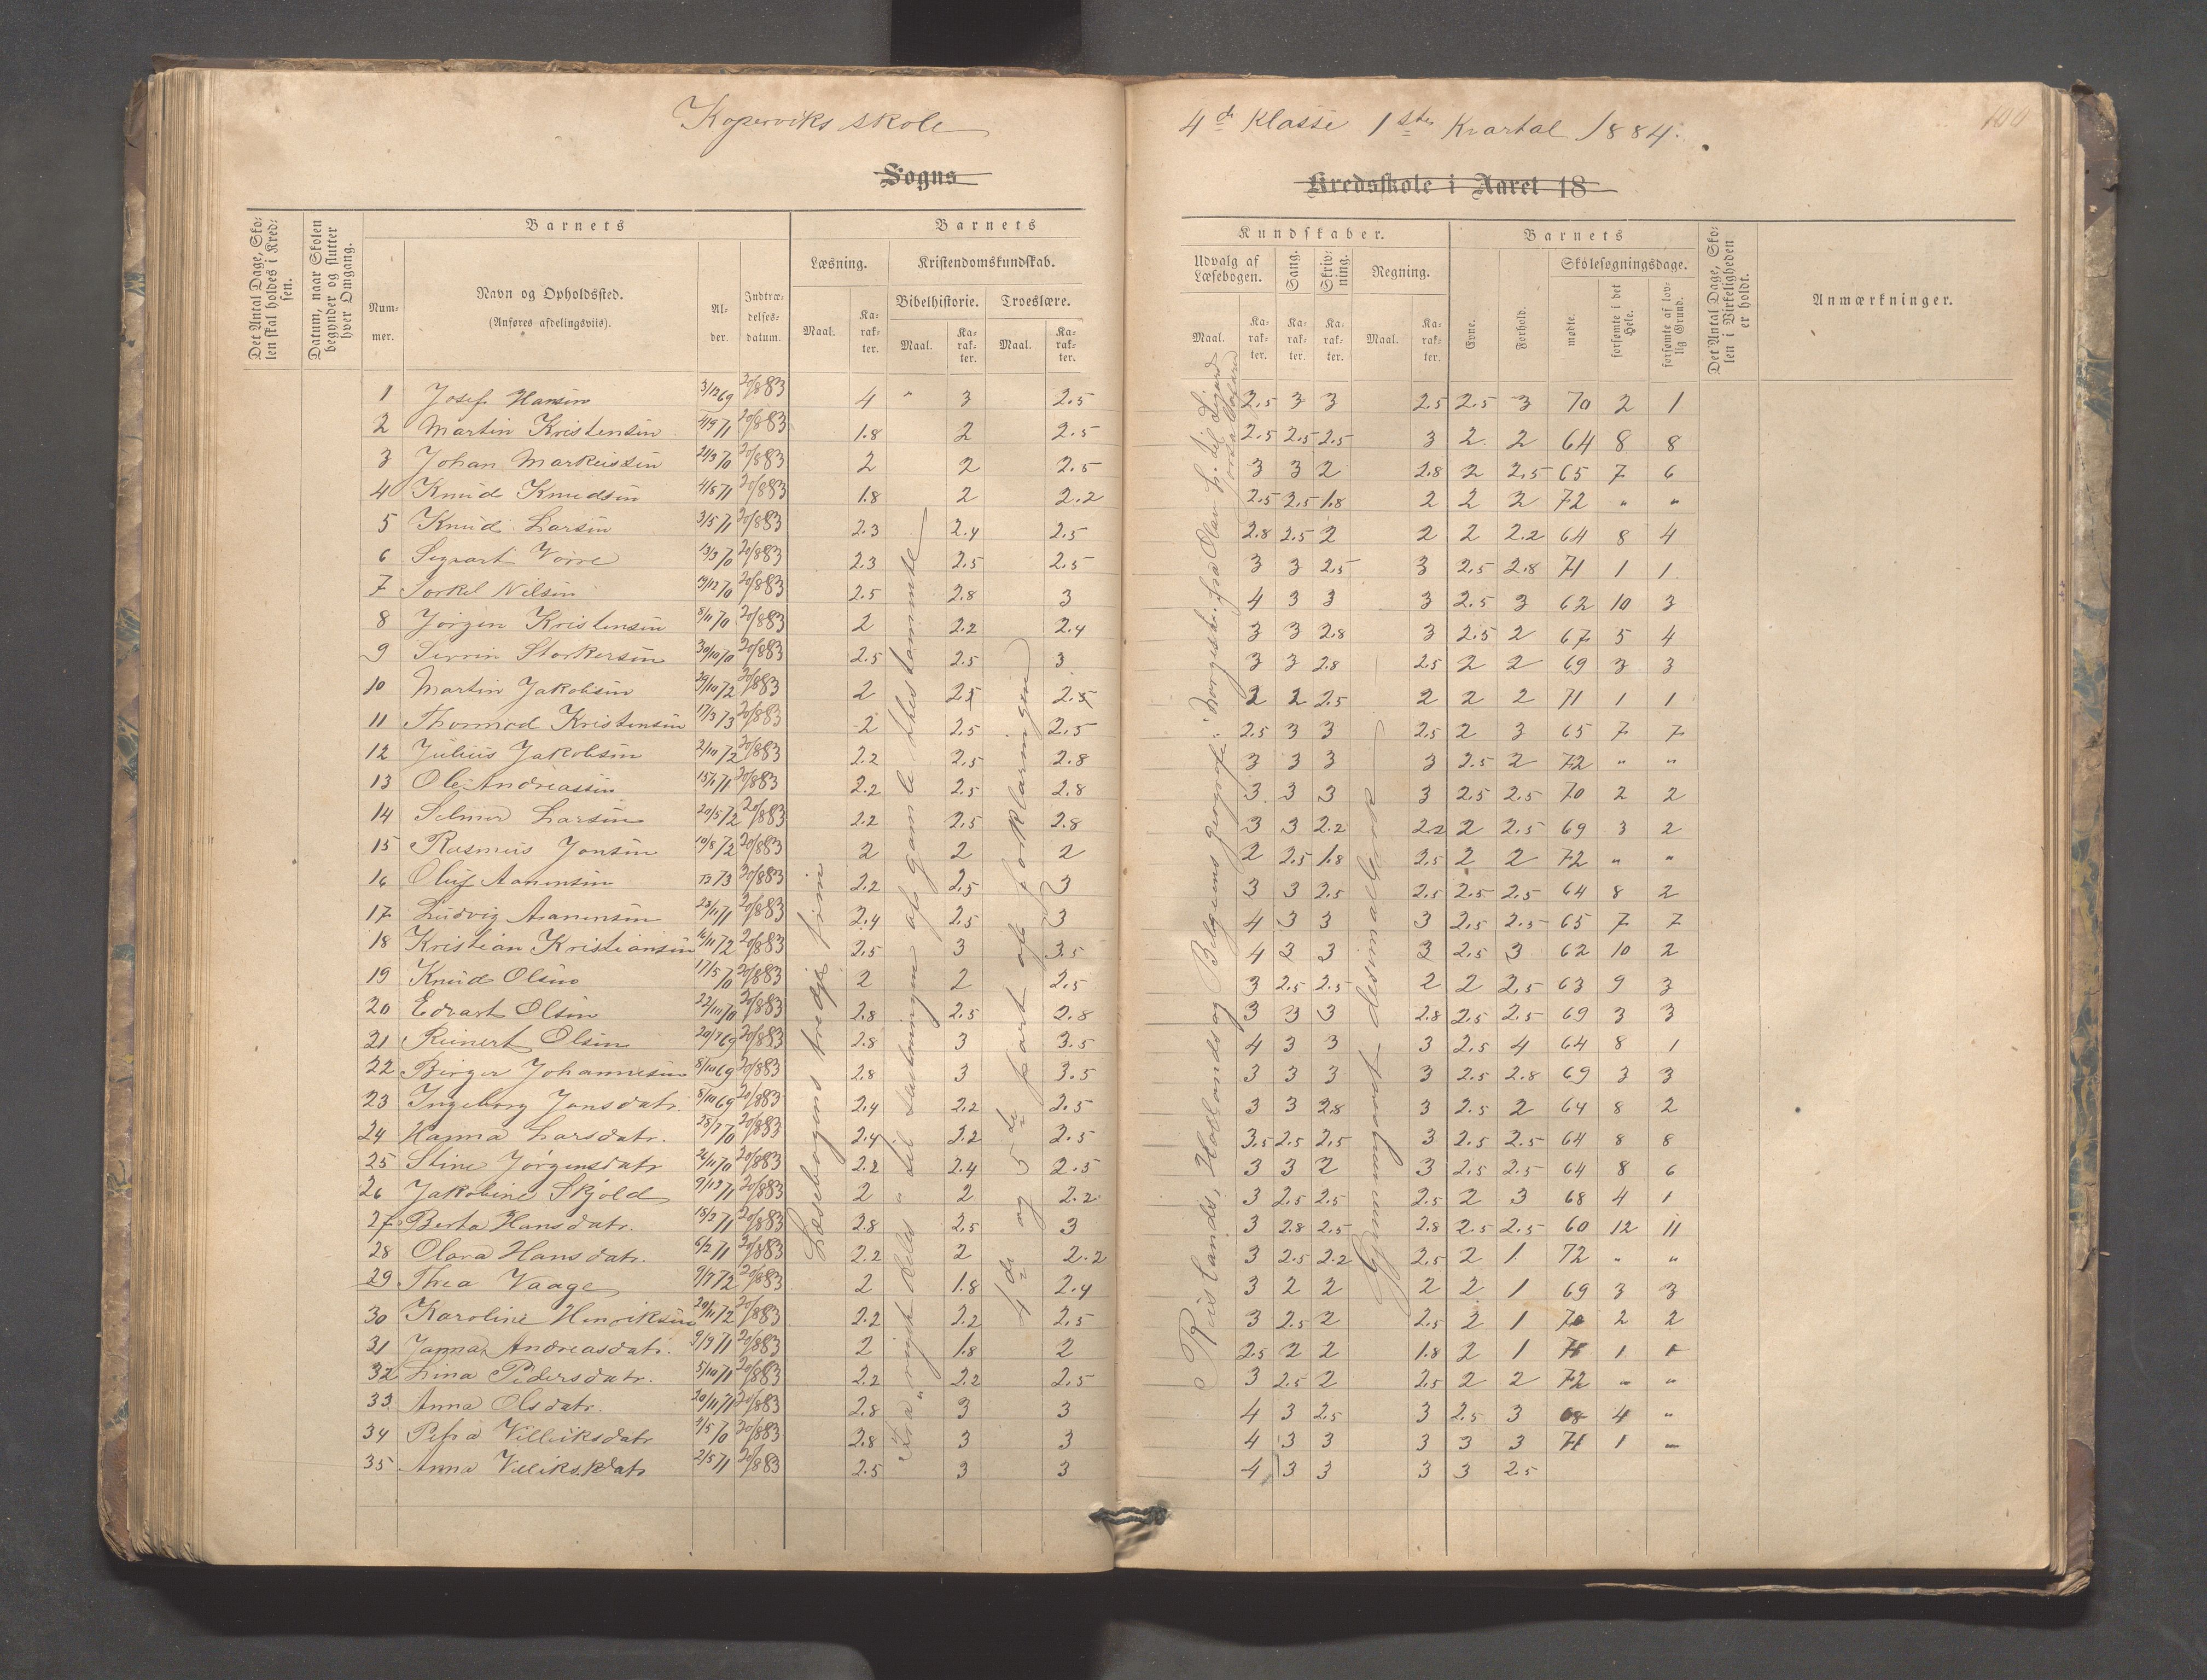 Koperviks skole
4de Klasse 1ste Kvartal 1884.
100
Sogns
Kredsskole i Aaret 18
Det Antal Dage, Skolen skal holdes i Kredsen.
Datum, naar Skolen begynder og slutter hver Omgang.
Barnets
Barnets
Kundskaber.
Barnets
Det Antal Dage, Skolen i Virkeligheden er holdt.
Anmærkninger.
Nummer.
Navn og Opholdssted.
(Anføres afdelingsviis).
Alder.
Indtrædelsesdatum.
Læsning.
Kristendomskundskab.
Bibelhistorie.
Troeslære.
Udvalg af Læsebogen.
Sang.
Skrivning.
Regning.
Evne.
Forhold.
Skolesøgningsdage.
Maal. Karakter. Maal. Karakter. Maal. Karakter.
Maal. Karakter. Karakter. Karakter. Maal. Karakter.
mødte. forsømte i det Hele. forsømte af lovlig Grund.
Læsebogens tredje
gamle
4de og 5te part af forklaringen
Hollands og Belgiens geografi
Gjennemgaaet desimalbrøk
1 Josef Hansen 3/12 69 20/8 83 4 " 3 2.5 2.5 3 3 2.5 2.5 3 70 2 1
2 Martin Kristensen 20/8 83 1.8 2 2.5 2.5 2.5 2.5 3 2 2 64 8 8
3 Johan Markussen 20/8 83 2 2 2.5 3 3 2 2.8 2 2.5 65 7 6
4 Knud Knudsen 4/8 71 20/8 83 1.8 2 2.2 2.5 2.5 1.8 2 2 2 72 " "
5 Knud Larsen 3/5 71 20/8 83 2.3 2.4 2.5 2.8 2.5 2 2 2 2.2 64 8 4
6 Sigvart Vorre 13/3 70 20/8 83 2.3 2.5 2.5 3 3 2.5 3 2.5 2.8 71 1 1
7 Torkel Nilsen 20/8 83 2.5 2.8 3 4 3 3 3 2.5 3 62 10 3
8 Jørgen Kristensen 8/11 70 20/8 83 2 2.2 2.4 3 3 2.8 3 2.5 2 67 5 4
9 Storkersen 30/10 70 20/8 83 2.5 2.5 3 3 3 2.8 2.5 2 2 69 3 3
10 Martin Jakobsen 29/10 72 20/8 83 2 2.5 2.5 2 2 2.5 2 2 2 71 1 1
11 Thormod Kristensen 17/3 73 20/8 83 2 2.5 2.5 2.5 3 3 2.5 2 3 65 7 7
12 Julius Jakobsen 2/10 72 20/8 83 2.2 2.5 2.8 3 3 3 3 2.5 2 72 " "
13 Ole Andreassen 20/8 83 2.2 2.5 2.8 3 3 3 3 2.5 2.5 70 2 2
14 Selmer Larsen 20/5 72 20/8 83 2.2 2.5 2.8 3 3 2.2 2.2 2 2.5 69 3 2
15 Rasmus Jonsen 10/8 72 20/8 83 2 2 2 2 2.5 1.8 2.5 2 2 72 " "
16 Oluf Aanensen 20/8 83 2.2 2.5 3 3 3 2.5 2.5 2.5 2.5 64 8 2
17 Ludvig Aanensen 23/11 71 20/8 83 2.4 2.5 3 4 3 3 3 2.5 2.5 65 7 7
18 Kristian Kristiansen 16/11 72 20/8 83 2.5 3 3.5 4 3 3 3 2.5 3 62 10 2
19 Knud Olsen 17/5 70 20/8 83 2 2 2.5 3 2.5 2.5 2 2 2.5 63 9 3
20 Edvart Olsen 22/10 70 20/8 83 2.8 2.5 2.8 3 3 3 2.8 2.5 2.5 69 3 3
21 Reinert Olsen 20/7 69 20/8 83 2.8 3 3.5 4 3 3 3 2.5 4 64 8 1
22 Birger Johannesen 8/10 69 20/8 83 2.8 3 3.5 3 3 3 3 2.5 2.8 69 3 3
23 Ingeborg Jonsdatr. 8/10 69 20/8 83 2.4 2.2 2.5 3 3 2.8 3 2.5 2 64 8 2
24 Hanna Larsdatr. 28/7 70 20/8 83 2.4 2.2 2.5 3.5 2.5 2.5 3 2.5 2.5 64 8 8
25 Stine Jørgensdatr 26/11 70 20/8 83 2.2 2.4 2.5 3 3 2 3 2.5 2.5 64 8 6
26 Jakobine Skjold 9/12 71 20/8 83 2 " 2 2.2 3 2.5 2.5 2.5 2 3 68 4 1
27 Berta Hansdatr. 18/2 71 20/8 83 2.8 2.5 3 3 2.8 2.5 2.8 2.5 2.5 60 12 11
28 Olava Hansdatr. 6/2 71 20/8 83 2.2 2 2.2 3 2.5 2.2 2.5 2 1 72 " "
29 Thea Vaage 9/7 72 20/8 83 2 1.8 2.4 3 2 2 2 2 1 69 3 3
30 Karoline Henriksen 20/11 72 20/8 83 2.2 2.2 2.5 3 2.5 2 2.5 2 1 70 2 2
31 Janna Andreasdatr. 9/9 71 20/8 83 2 1.8 2 2.5 2 2 1.8 2 1 71 1 1
32 Lina Pedersdatr. 5/10 71 20/8 83 2.2 2.2 2.5 3 2.5 2 2.5 2 2 72 " "
33 Anna Olsdatr. 20/11 71 20/8 83 2.8 3 3 4 3 2.5 3 2.5 3 68 4 "
34 Petra Villiksdatr 20/8 83 2.8 3 3 4 3 3 3 3 3 71 1 "
35 Anna Villiksdatr 2/5 71 20/8 83 2.5 3 3 4 3 3 3 3 2.5